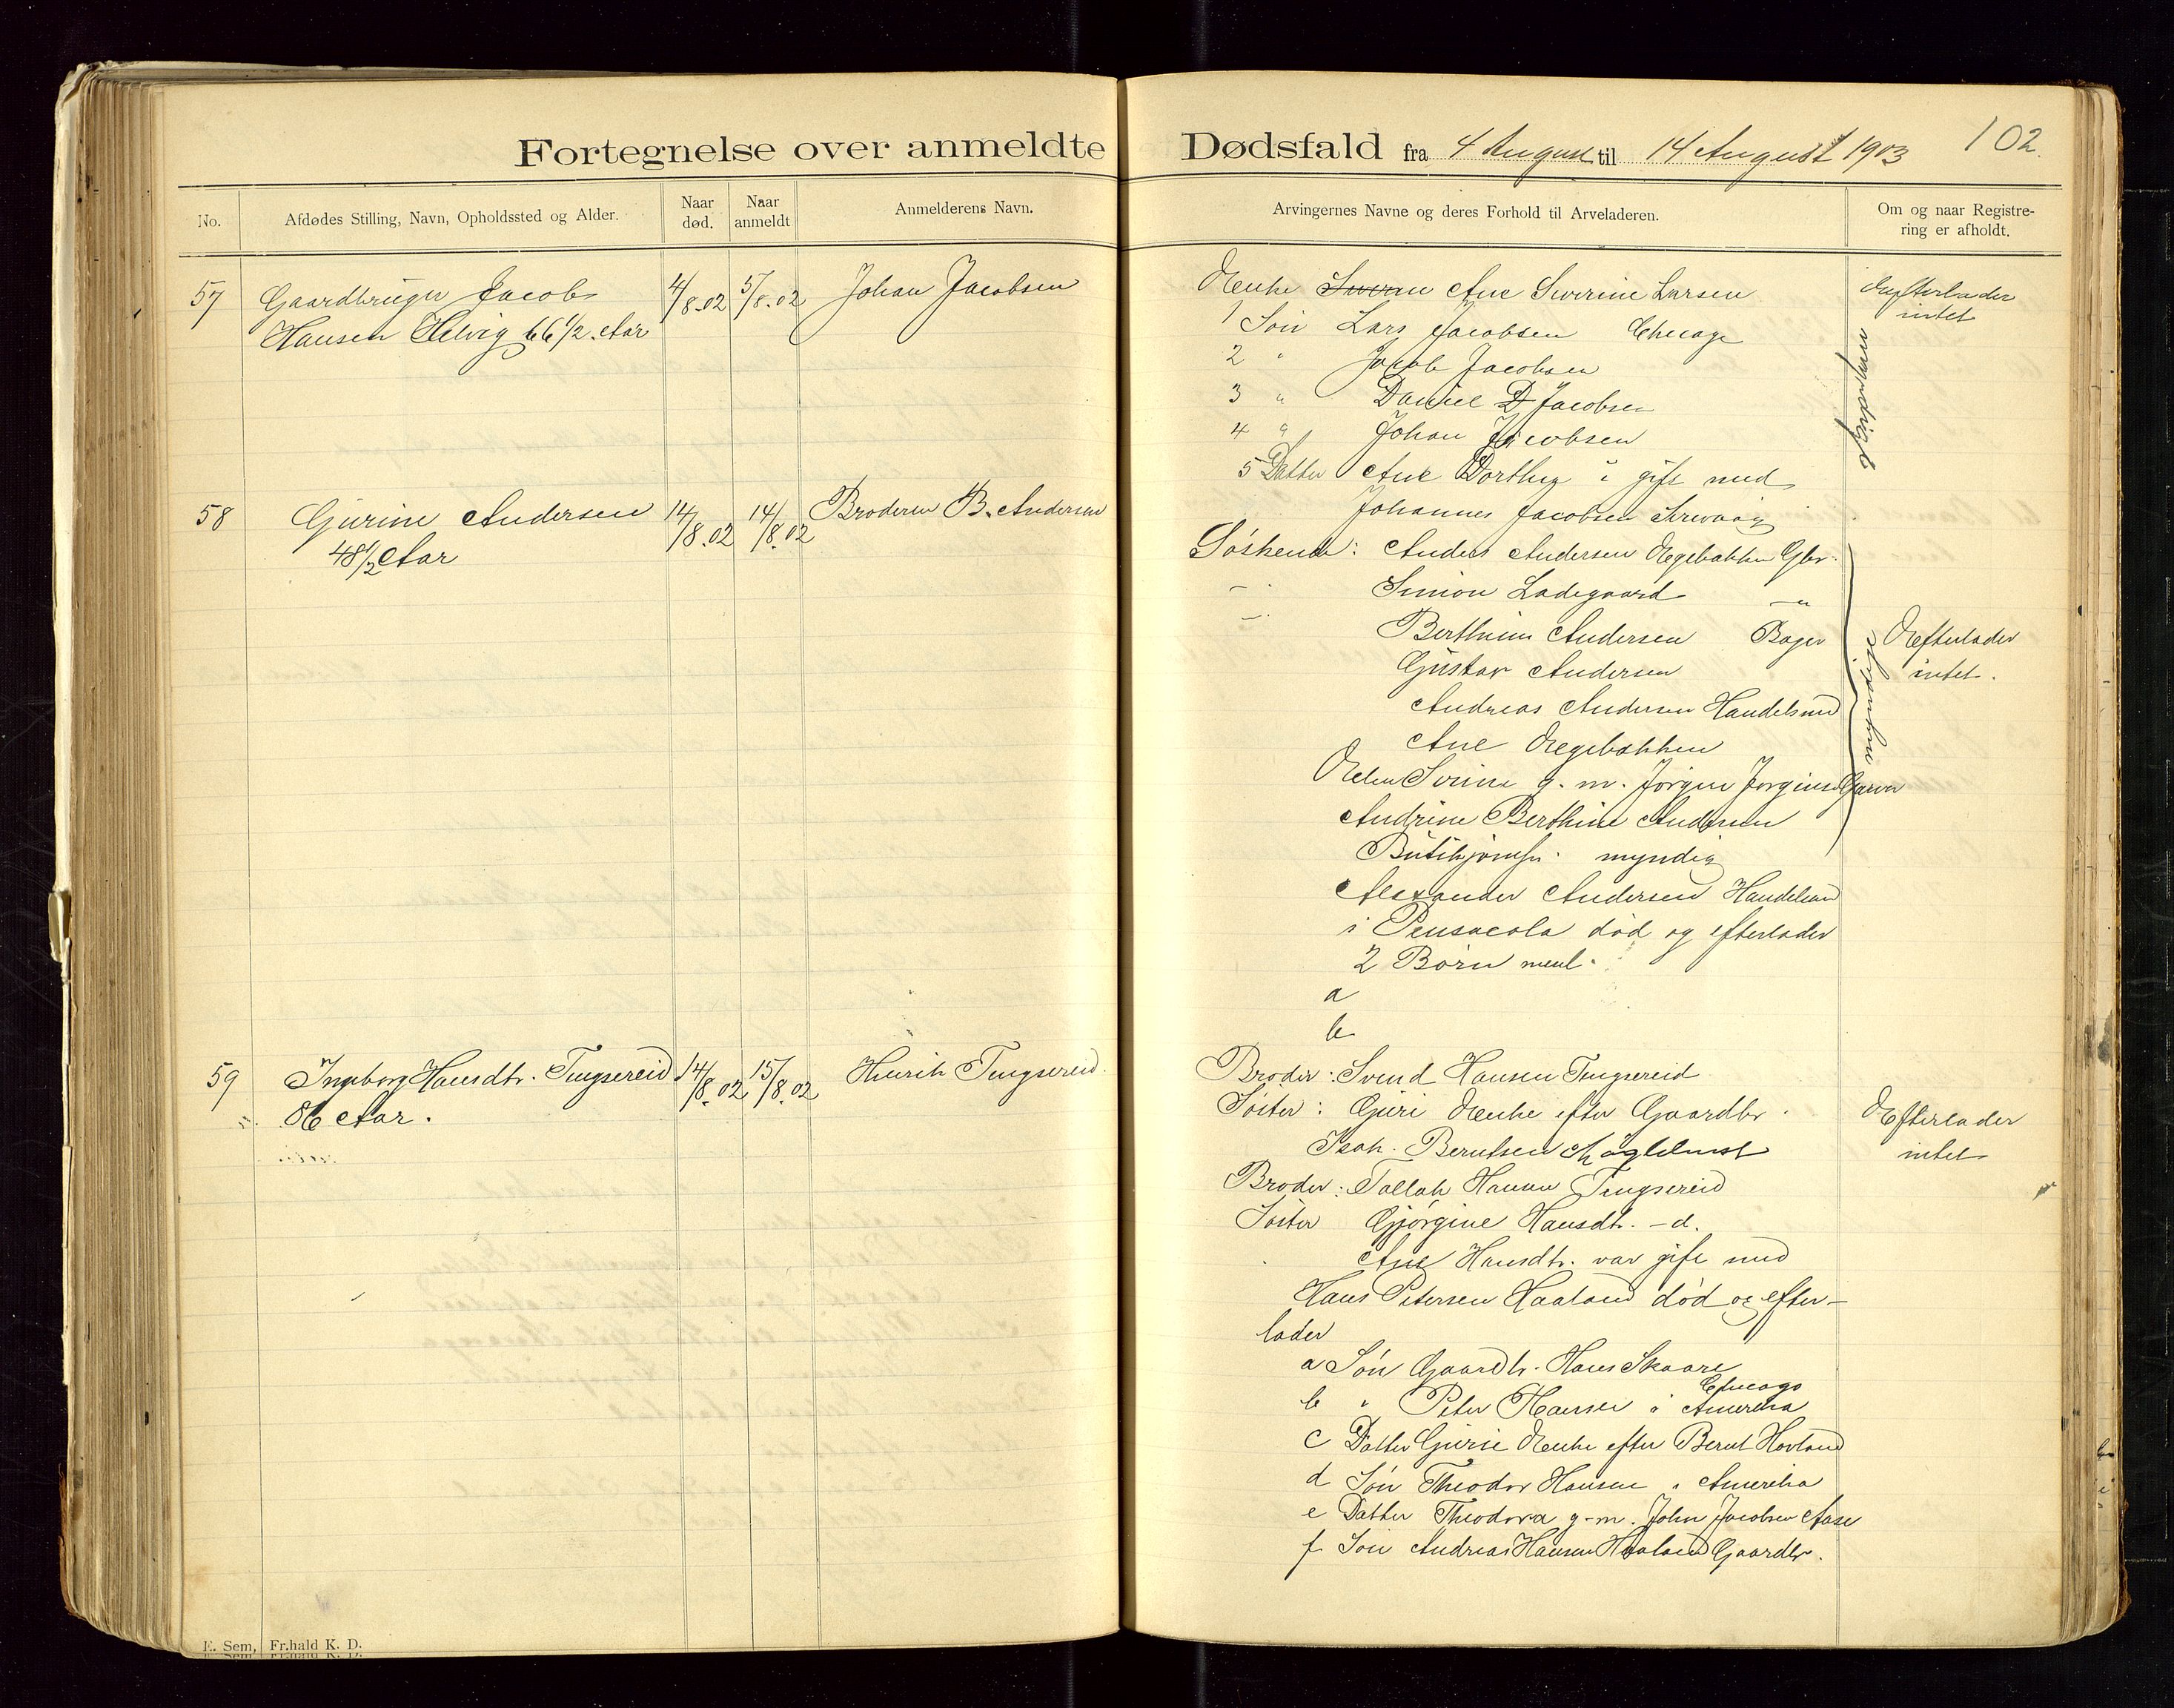 Fortegnelse over anmeldte Dødsfald fra 4 August til 14 August 1903 102.
No.
Afdødes Stilling, Navn, Opholdssted og Alder.
Naar død.
Naar anmeldt
Anmelderens Navn.
Arvingernes Navne og deres Forhold til Arveladeren.
Om og naar Registre-
ring er afholdt.
57 Gaardbruger Jacob 4/8.02 5/8.02 Johan Jacobsen
Hansen Helvig 66 1/2 Aar
Enke Ane Severine Larsen
1 Søn Lars Jacobsen Chicago
2 " Jacob Jacobsen
3 " Daniel D Jacobsen
4 " Johan Jacobsen
5 Datter Ane Dorthea gift med
Johannes Jacobsen
Efterlader
intet
58 Gurine Andersen 14/8.02 14/8.02 Broderen B. Andersen
48 1/2 Aar
Søskende: Anders Andersen Egebakken Gbr.
- Simon Ladegaard - "
- Berthinus Andersen Bager
Gustav Andersen
Andreas Andersen Handelsmd
Ane Egebakken
Elen Serine g. m. Jørgen Jørgensen Garver
Andrine Berthine Andersen
myndig
Alexander Andersen Handelsmd
i Pensacola død og efterlader
2 Børn meul.
a
b
Efterlader
intet.
59 Ingborg Hansdtr. Tungsereid 14/8.02 15/8.02 Henrik Tungsereid.
86 Aar.
Broder: Svend Hansen Tungsereid
Søster: Guri Enke efter Gaardbr.
Isak Berntsen
Broder: Tollak Hansen Tungsereid
Søster Gjørgine Hansdtr. - d.
Ane Hansdtr. var gift med
Hans Petersen Haaland død og efter-
lader
a Søn Gaardbr. Hans Skaare
Chicago
b " Peter Hansen i Amerika
c Datter Gurie Enke efter Bernt Hovland
d Søn Theodor Hansen i Amerika
e Datter Theodora g. m. John Jacobsen Aase
f Søn Andreas Hansen Haaland Gaardbr.
Efterlader
intet
E. Sem, Fr.hald K. D.
E. Sem Fr.hald K. D.